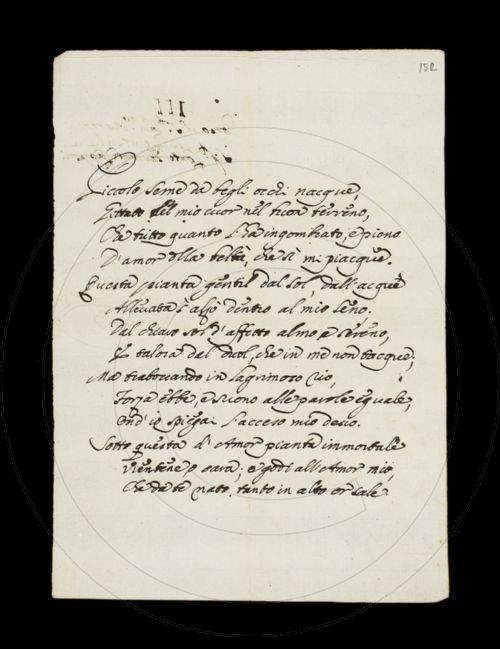 152
III
Piccolo seme da begli occhi nacque,
Gittato del mio cuor nel ricco terreno,
Che tutto quanto l'ha ingombrato, e pieno
D'amor alla beltà, che sì mi piacque.
Questa pianta gentil dal sol, dall'acque
Allevata s'alzò dentro al mio seno:
Dal chiaro sol d'aspetto almo e sereno,
E talora dal duol, che in me non tacque;
Ma traboccando in lagrimoso rio,
Forza ebbe, e suono alle parole eguale,
Ond'io spiegai l'acceso mio desio.
Sotto questa d'Amor pianta immortale
Vientene o cara; e godi all'Amor mio,
Che da te nato, tanto in alto or sale